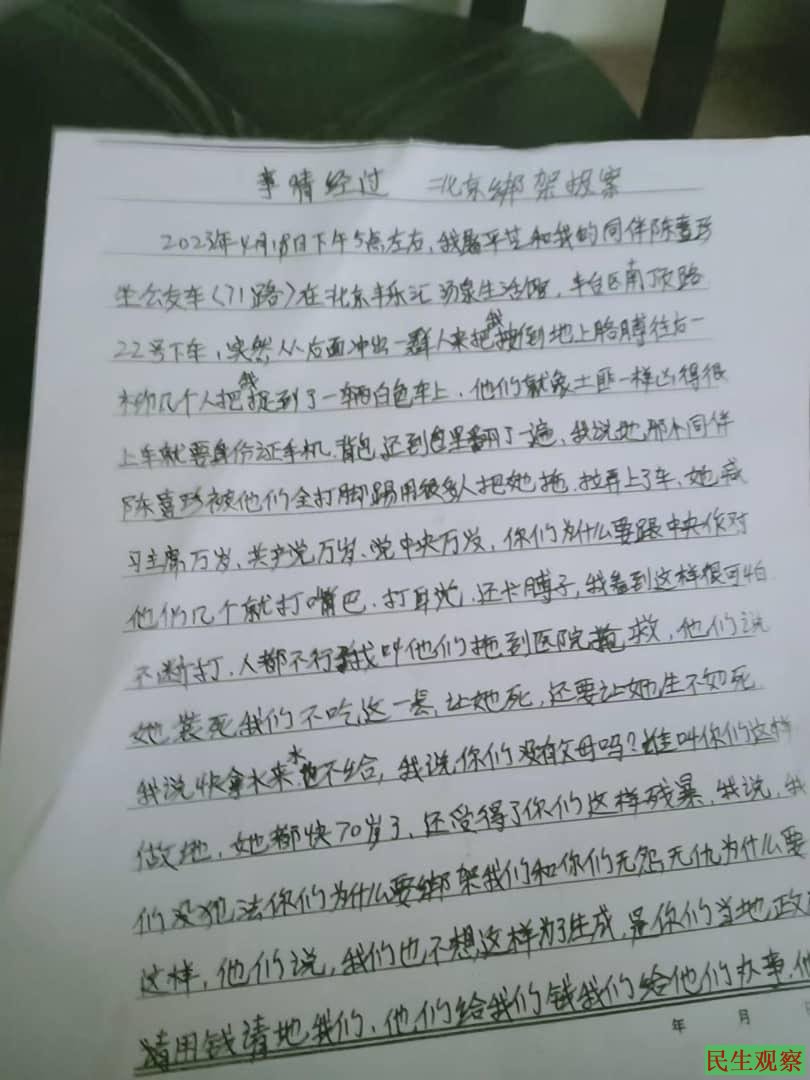 事情经过 北京绑架报案
2023年4月18日下午5点左右，我 平 和我的同伴陈喜珍
坐公交车（71路）在北京丰乐汇汤泉生活馆，丰台区南顶路
22号下车，突然从后面冲出一群人来把我按倒地上胳膊往后一
几个人把我捉到了一辆白色车上，他们就象土匪一样凶得很
上车就要身份证手机、背包、还到包里翻了一遍，我说地那个同伴
陈喜珍被他们全打脚踢用很多人把她拖、拉弄上了车、她喊
习主席万岁、共产党万岁、党中央万岁，你们为什么要跟中央作对
他们几个就打嘴巴、打耳光、还卡脖子，我看到这样很可怕
不断打，人都不行 我叫他们拖到医院抢救，他们说
她装死我们不吃这一套，让她死，还要让她生不如死
我说快拿水来水也不给，我说你们没有父母吗？谁叫你们这样
做地，她都快70岁了，还受得了你们这样残暴，我说，我
们没犯法你们为什么要绑架我们和你们无怨无仇为什么要
这样，他们说，我们也不想这样为了生成，是你们当地政
请用钱请地我们，他们给我们钱我们给他们办事，他
年 月
民生观察